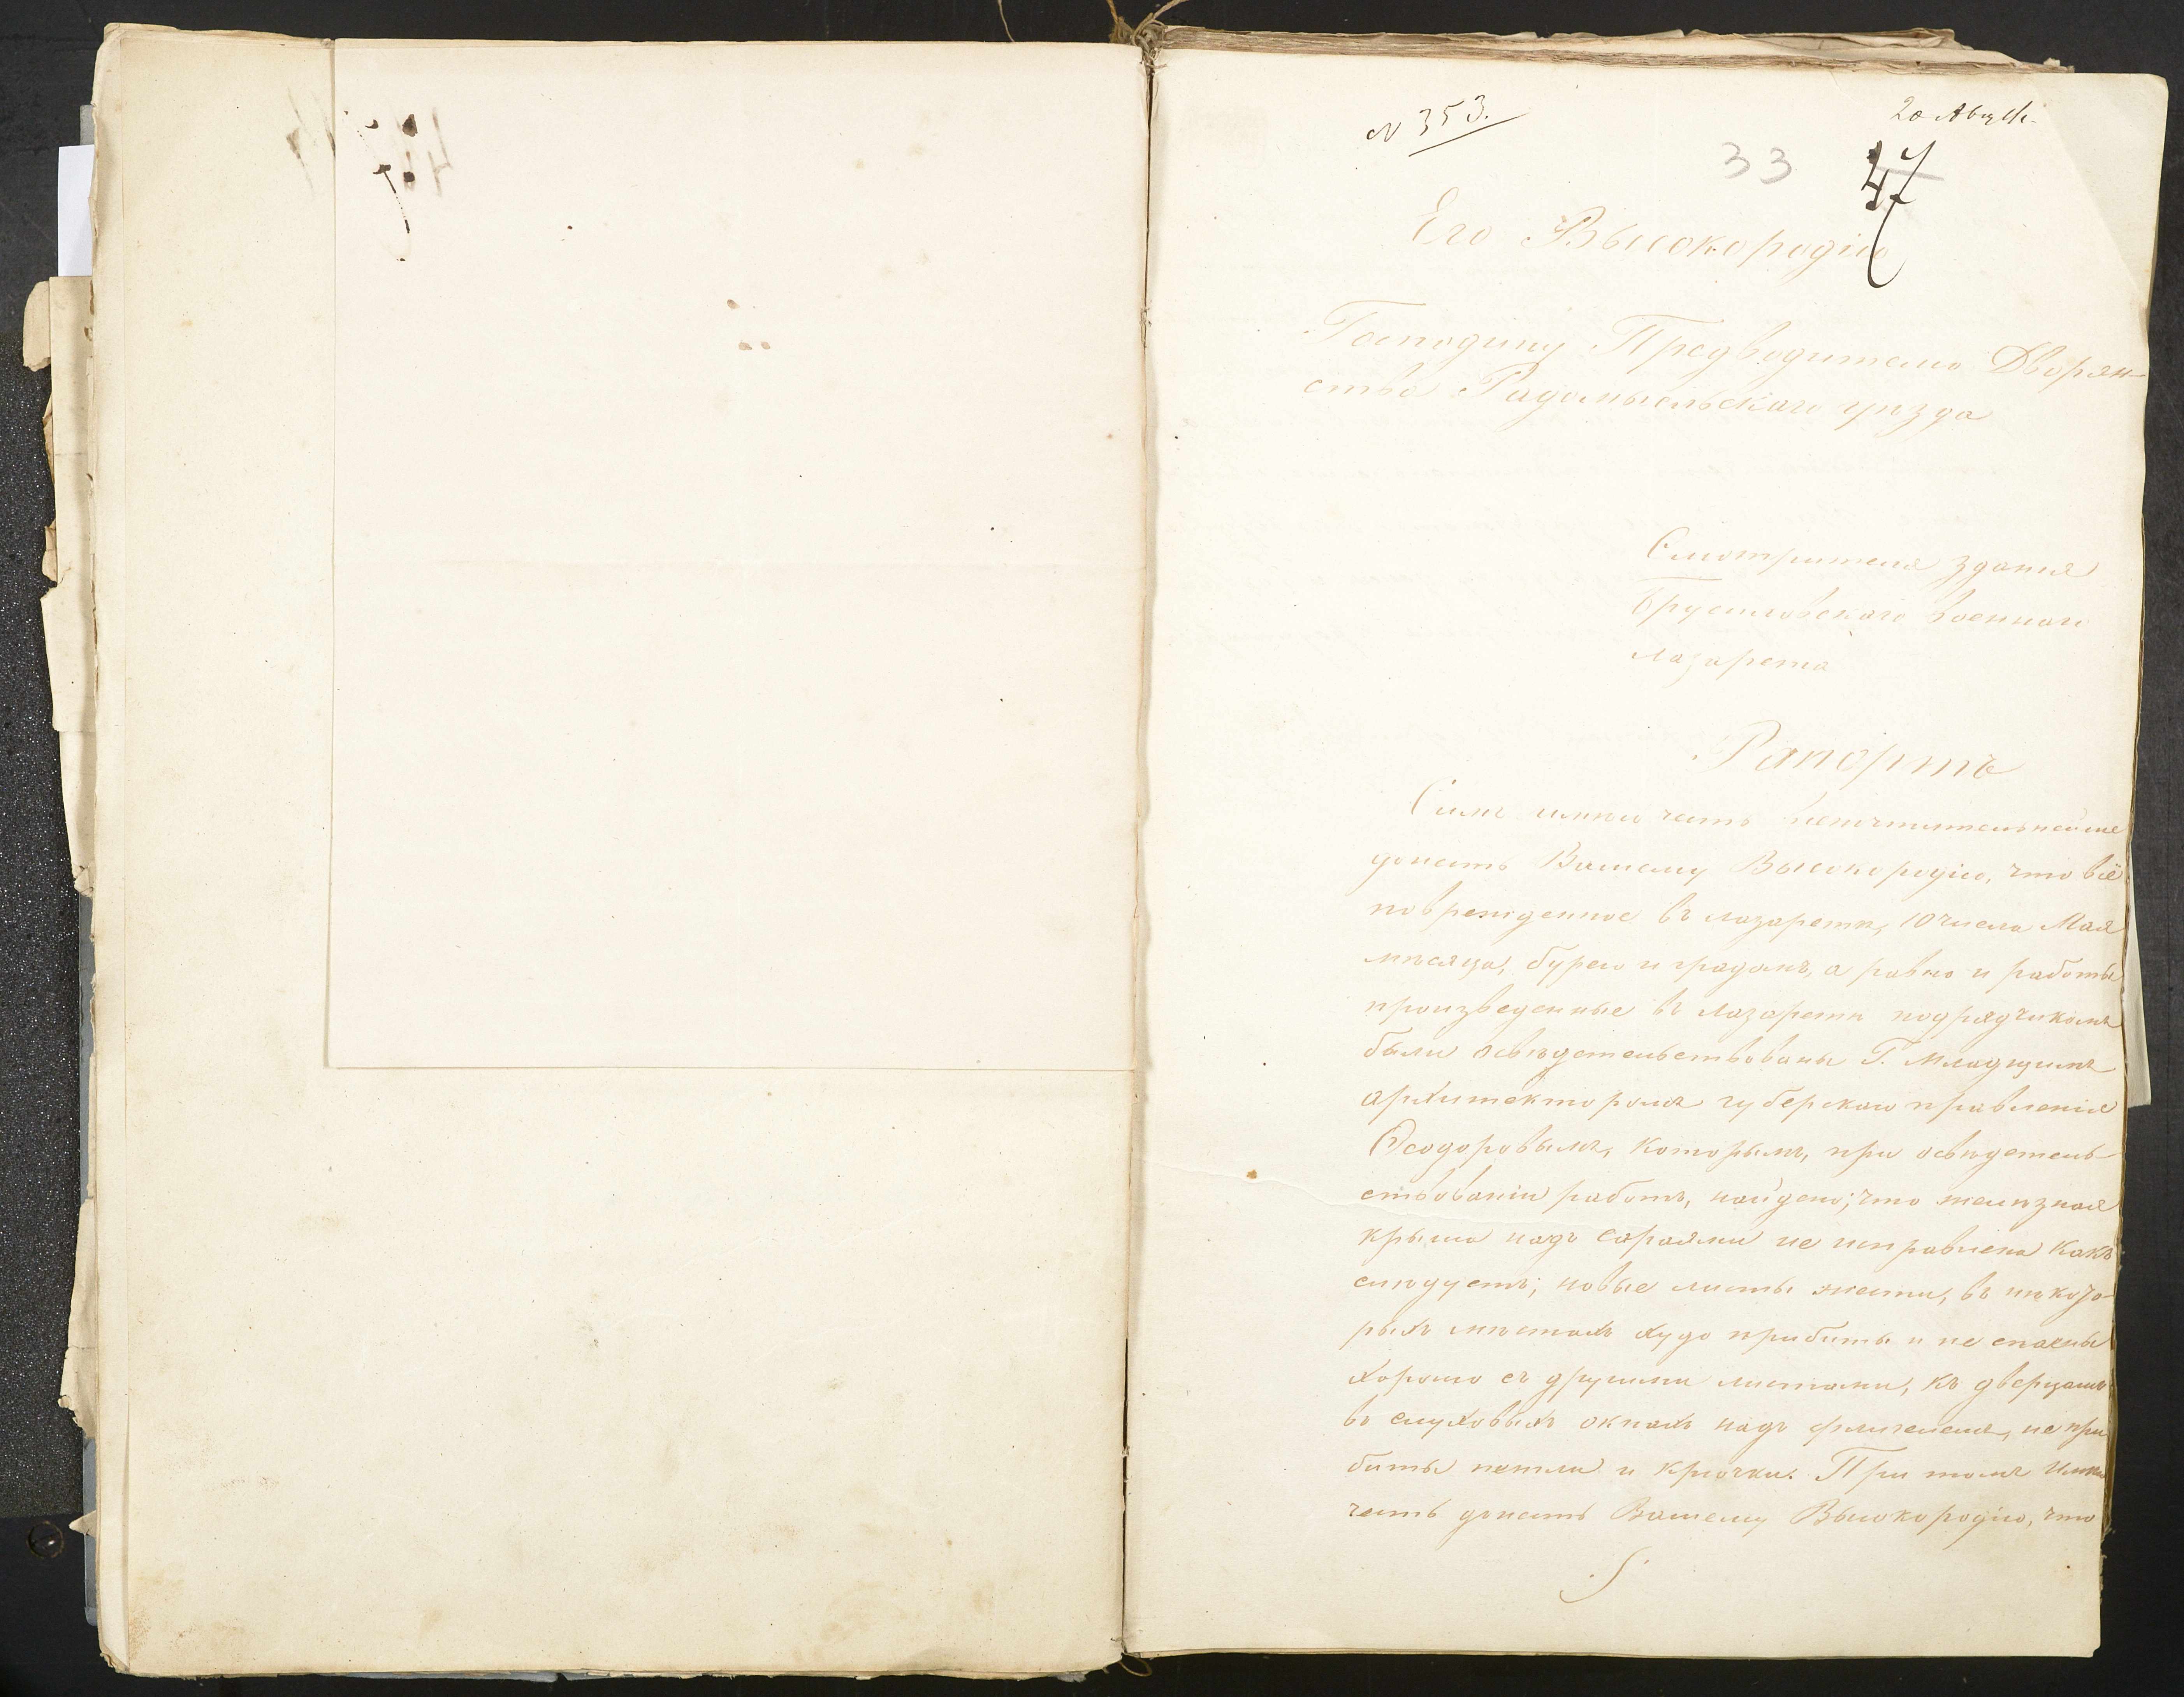 № 353.
20 Авг
33 47
Его Высокородію
Господину Предводителю Дворян-
ства Радомысльскаго уѣзда
Смотрителя зданія
Брусиловскаго военнаго
лазарета
Рапортъ
Симъ имѣю честь почтительнейше
донесть Вашему Высокородію, что всё
поврежденное въ лазаретѣ, 10 числа Мая
мѣсяца, бурею и градомъ, а равно и работы
произведенные въ лазаретѣ подрядчикомъ
были освѣдетельствованы Г. Младшимъ
архитекторомъ губерскаго правленія
Ѳеодоровымъ, которымъ, при освѣдетель-
ствованіи работъ, найдено; что желѣзная
крыша надъ сараями не исправлена какъ
слѣдуетъ; новые листы жести, въ нѣкото-
рыхъ мѣстахъ худо прибиты и не спаены
хорошо съ другими листами, къ дверцамъ
въ слуховыхъ окнахъ надъ флигелемъ, не при
биты петли и крючки. При томъ имѣю
честь донесть Вашему Высокородію, что